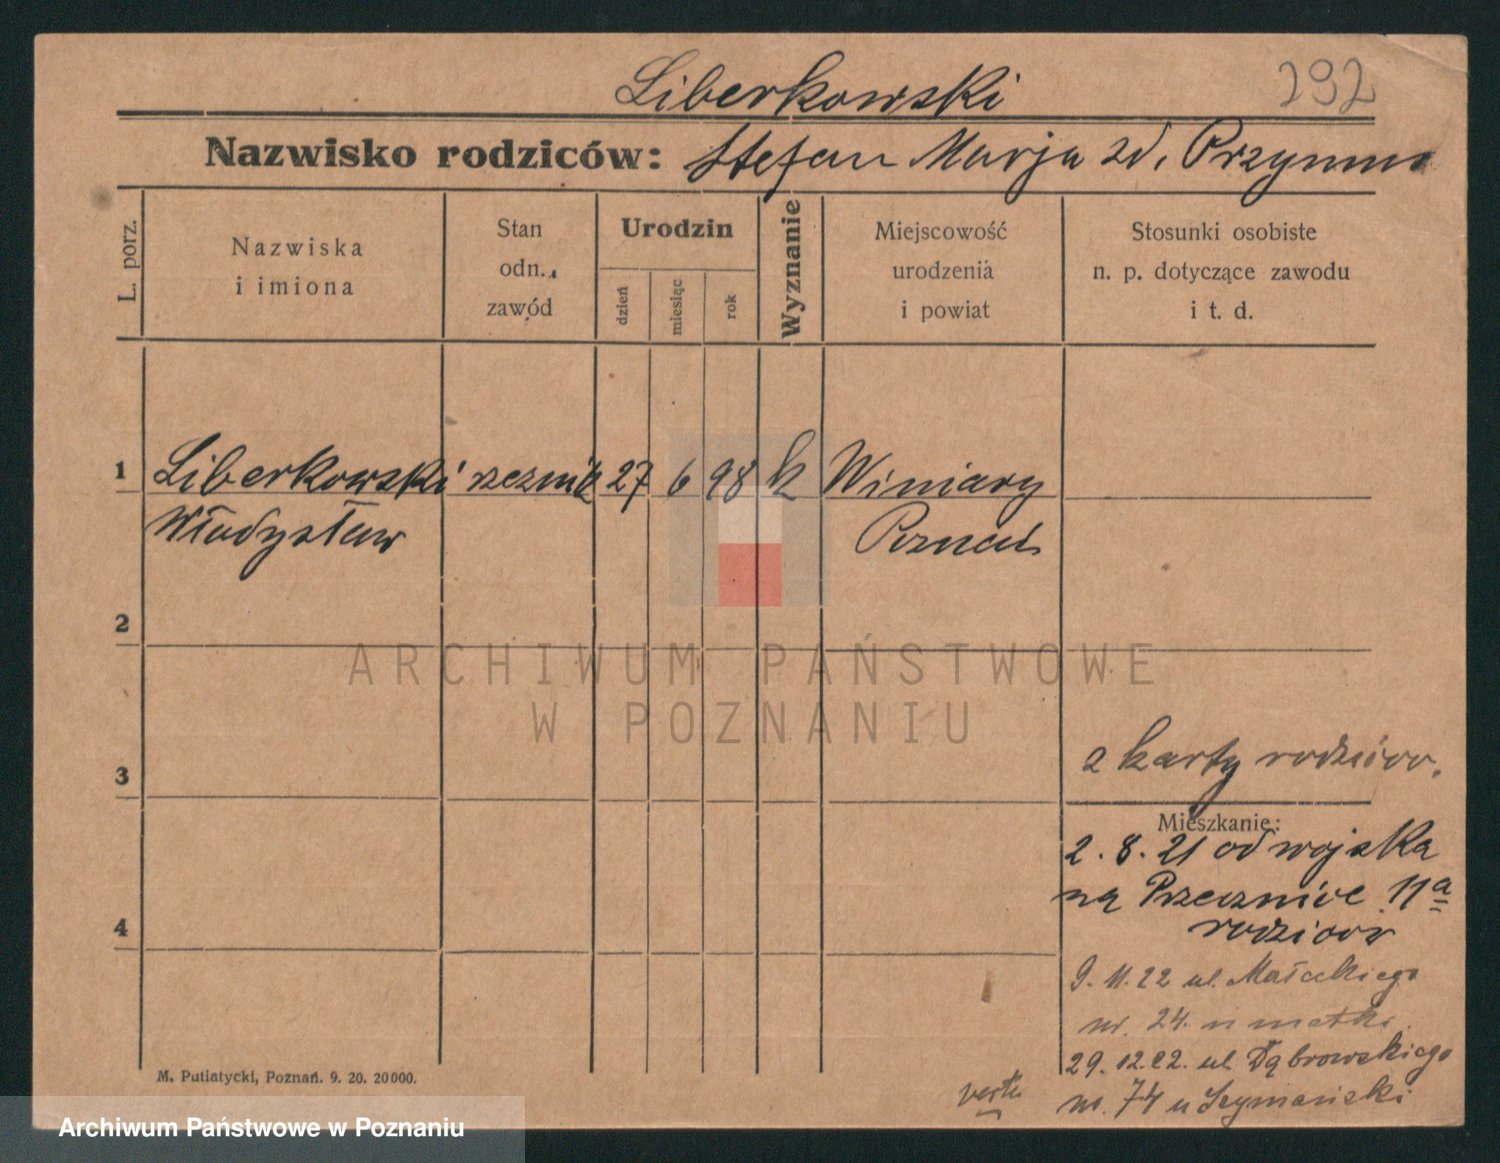 292
Liberkowski
Nazwisko rodziców: Stefan Marja zd. Przymus
L. porz.
Nazwiska
i imiona
Stan
odn.,
zawód
Urodzin
dzień
miesiąc
rok
Wyznanie
Miejscowość
urodzenia
i powiat
Stosunki osobiste
n. p. dotyczące zawodu
i t. d.
1 Liberkowski rzeznik 27 6 98 k Winiary
Władysław Poznań
2
3
z karty rodziców.
Mieszkanie:
2. 8. 21 od wojska
na Przecznice 11a
rodziców
4
9. 11. 22 ul. Małeckiego
nr. 24. u matki
29. 12. 22. ul. Dąbrowskiego
nr. 74 u Szymański
verte
M. Putiatycki, Poznań. 9. 20. 20000.
ARCHIWUM PAŃSTWOWE
W POZNANIU
Archiwum Państwowe w Poznaniu